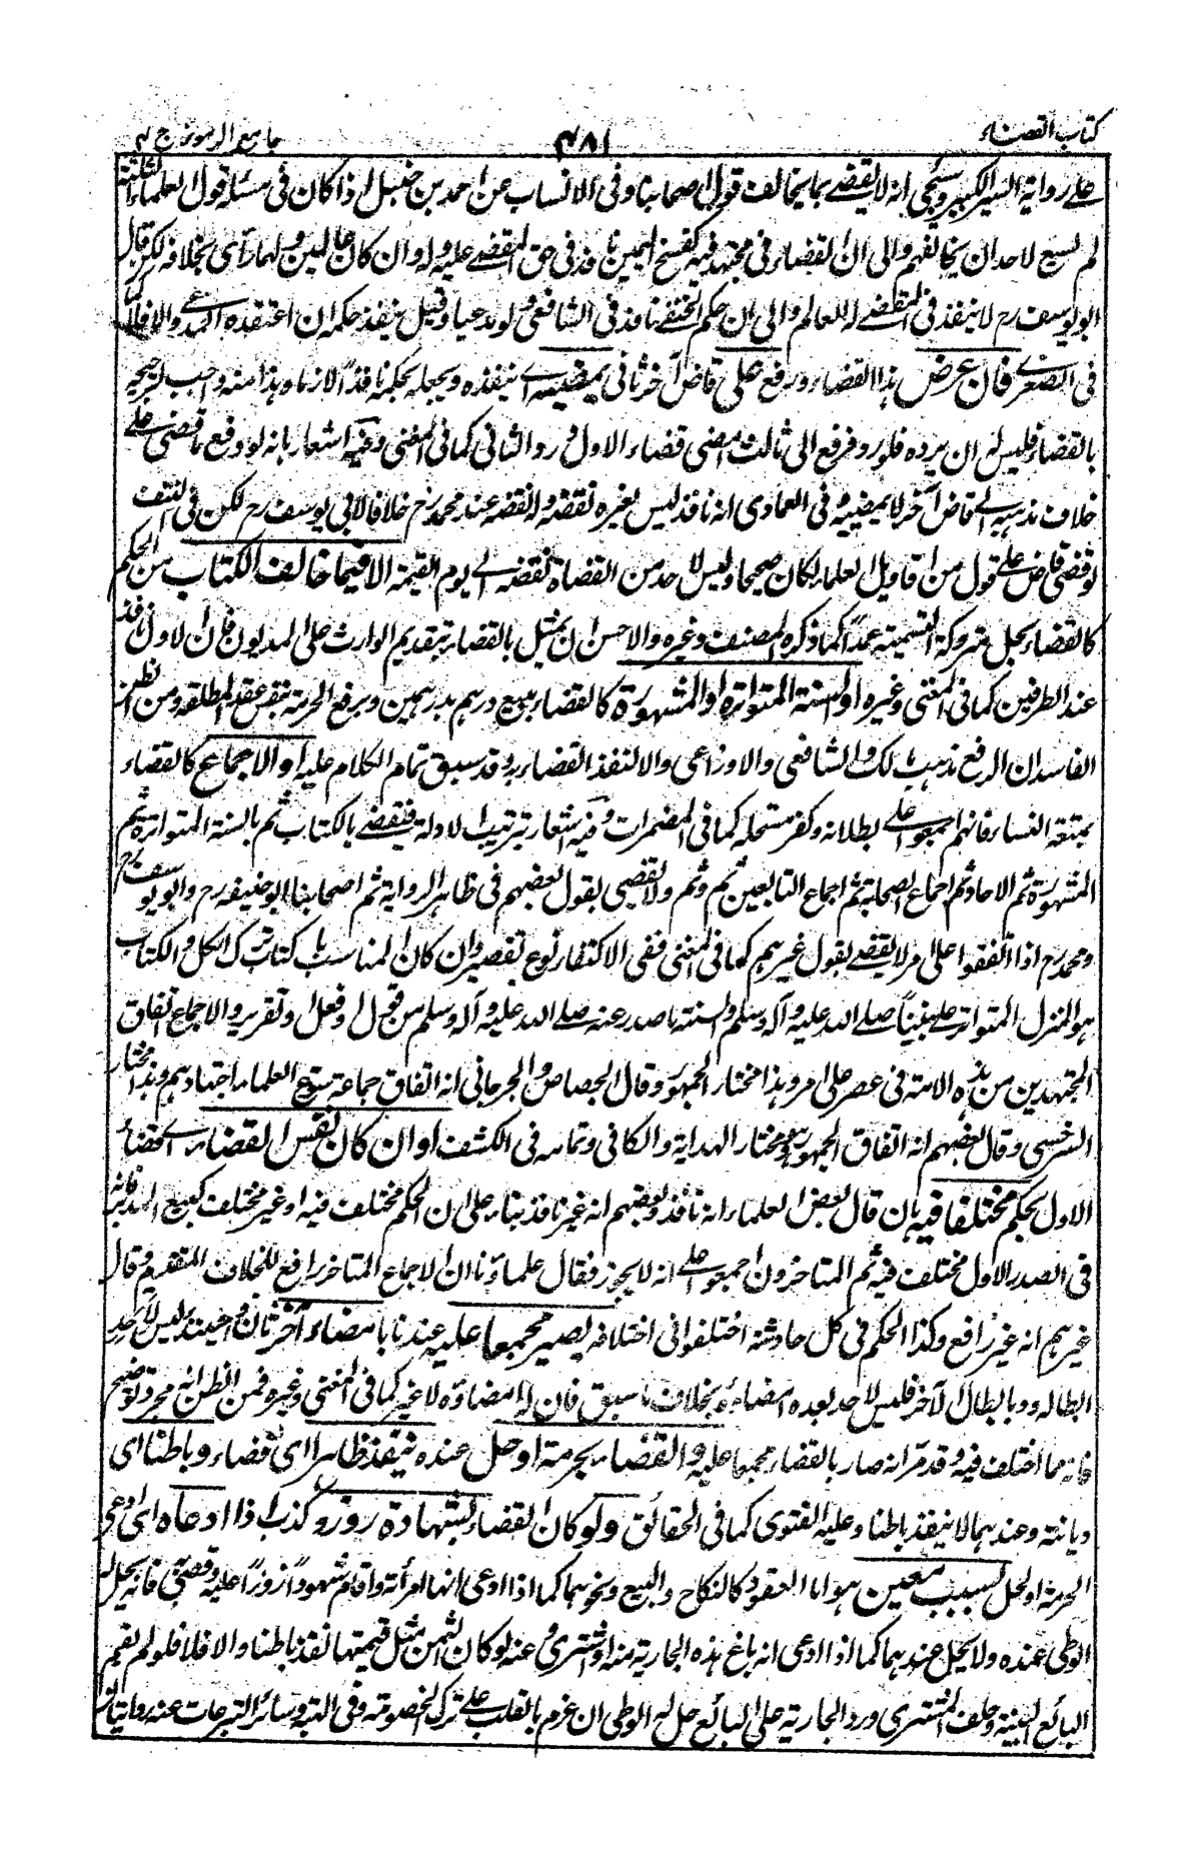 كتاب القضاء
٣٨١
جامع الرموز ج ٣
على رواية السير الكبير وسيجئ انه لا يقضى بما يخالف قول اصحابنا وفى الانساب عن احمد بن حنبل اذا كان فى مسئلة قول العلماء الثلثة
لم يسع لاحد ان يخالفهم والى ان القضاء فى مجتهد فيه كفسخ اليمين نافذ فى حق المقضى عليه وله وان كان عالمين ولهما رأى بخلافه لكن قال
ابو يوسف رح لا ينفذ فى المقضى له العالم والى ان حكم الحنفى نافذ فى الشافعى ولو مدعيا وقيل ينفذ حكمه ان اعتقده المدعى والا فلا كما
فى الصغرى فان عرض هذا القضاء ورفع على قاض آخر ثانى يمضيه اى ينفذه ويجعله بحكمه نافذا لازما وهذا منه واجب لترجحه
بالقضاء فليس له ان يرده فلو رد فرفع الى ثالث امضى قضاء الاول ورد الثانى كما فى المغنى وفيه اشعار بانه لو رفع ما قضى على
خلاف مذهبه الى قاض آخر لا يمضيه وفى العمادى انه نافذ ليس لغيره نقضه ولنقضه عند محمد رح خلافا لابى يوسف رح لكن فى النتف
لو قضى قاض على قول من اقاويل العلماء لكان صحيحا وليس لاحد من القضاة نقضه الى يوم القيمة الا فيما خالف الكتاب من الحكم
كالقضاء بحل متروكة التسمية عمدا كما ذكره المصنف وغيره والاحسن ان يمثل بالقضاء بتقديم الوارث على المديون فان الاول نافذ
عند الطرفين كما فى المغنى وغيره او السنة المتواترة او المشهورة كالقضاء ببيع درهم بدرهمين وبرفع الحرمة بنفس عقد المطلقة ومن الظن
الفاسد ان الرفع مذهب مالك والشافعى والاوزاعى والا لنفذ القضاء به وقد سبق تمام الكلام عليه او الاجماع كالقضاء
بمتعة النساء فانهم اجمعوا على بطلانه وكفر مستحله كما فى المضمرات وفيه اشعار بترتيب الادلة فيقضى بالكتاب ثم بالسنة المتواترة ثم
المشهورة ثم الآحاد ثم اجماع الصحابة ثم اجماع التابعين ثم وثم ولا يقضى بقول بعضهم فى ظاهر الرواية ثم اصحابنا ابو حنيفة رح وابو يوسف رح
ومحمد رح اذا اتفقوا على امر لا يقضى بقول غيرهم كما فى المغنى ففى الاكتفاء نوع تقصير وان كان المناسب باب كتاب ترك الكل والكتاب
هو المنزل المتواتر على نبينا صلى الله عليه وآله وسلم والسنة ما صدر عنه صلى الله عليه وآله وسلم من قول او فعل وتقرير والاجماع اتفاق
المجتهدين من هذه الامة فى عصر على امر وهذا مختار الجمهور وقال الجصاص والجرجانى انه اتفاق جماعة يسوغ العلماء اجتهادهم وهذا مختار
السرخسى وقال بعضهم انه اتفاق الجمهور وهو مختار الهداية والكافى وتمامه فى الكشف او ان كان نفس القضاء اى كقضاء
الاول بحكم مختلفا فيه بان قال بعض العلماء انه نافذ وبعضهم انه غير نافذ بناء على ان الحكم مختلف فيه او غير مختلف كبيع المدبر فانه
فى الصدر الاول مختلف فيه ثم المتاخرون اجمعوا على انه لا يجوز فقال علماؤنا ان الاجماع المتاخر رافع للخلاف المتقدم وقال
غيرهم انه غير رافع وكذا الحكم فى كل حادثة اختلفوا فى اختلافه يصير مجمعا عليه عندنا بامضاء آخر ثان وحينئذ ليس لاحد
ابطاله ولو بابطال الآخر فليس لاحد بعده امضاءه بخلاف ما سبق فان له امضاؤه لا غير كما فى المغنى وغيره فمن الظن انه مجرد توضيح
فانه مما اختلف فيه وقد مر انه صار بالقضاء مجمعا عليه والقضاء بحرمة او حل عنده ينفذ ظاهرا اى قضاء وباطنا اى
ديانة وعندهما لا ينفذ باطنا وعليه الفتوى كما فى الحقائق ولو كان القضاء بشهادة زور وكذب اذا ادعاه اى ادعى
الحرمة او الحل بسبب معين هو اما العقود كالنكاح والبيع ونحوهما كما اذا ادعى انها امرأته واقام شهودا زورا عليه وقضى فانه يحل له
الوطى عنده ولا يحل عندهما كما اذا ادعى انه باع هذه الجارية منه او اشترى وعنه لو كان الثمن مثل قيمتها نفذ باطنا والا فلا فلو لم يقم
البائع البينة وحلف المشترى ورد الجارية على البائع حل له الوطى ان عزم بالقلب على ترك الخصومة وفى الهبة وسائر التبرعات عنه روايتان